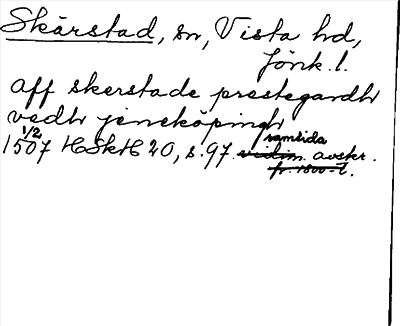 Skärstad, sn, Vista hd,
Jönk. l.
aff skerstade prestegardh
vedh jeneköpingh
1/2 samtida
1507 HSkH 20, s. 97. vidim. avskr.
fr. 1500-t.